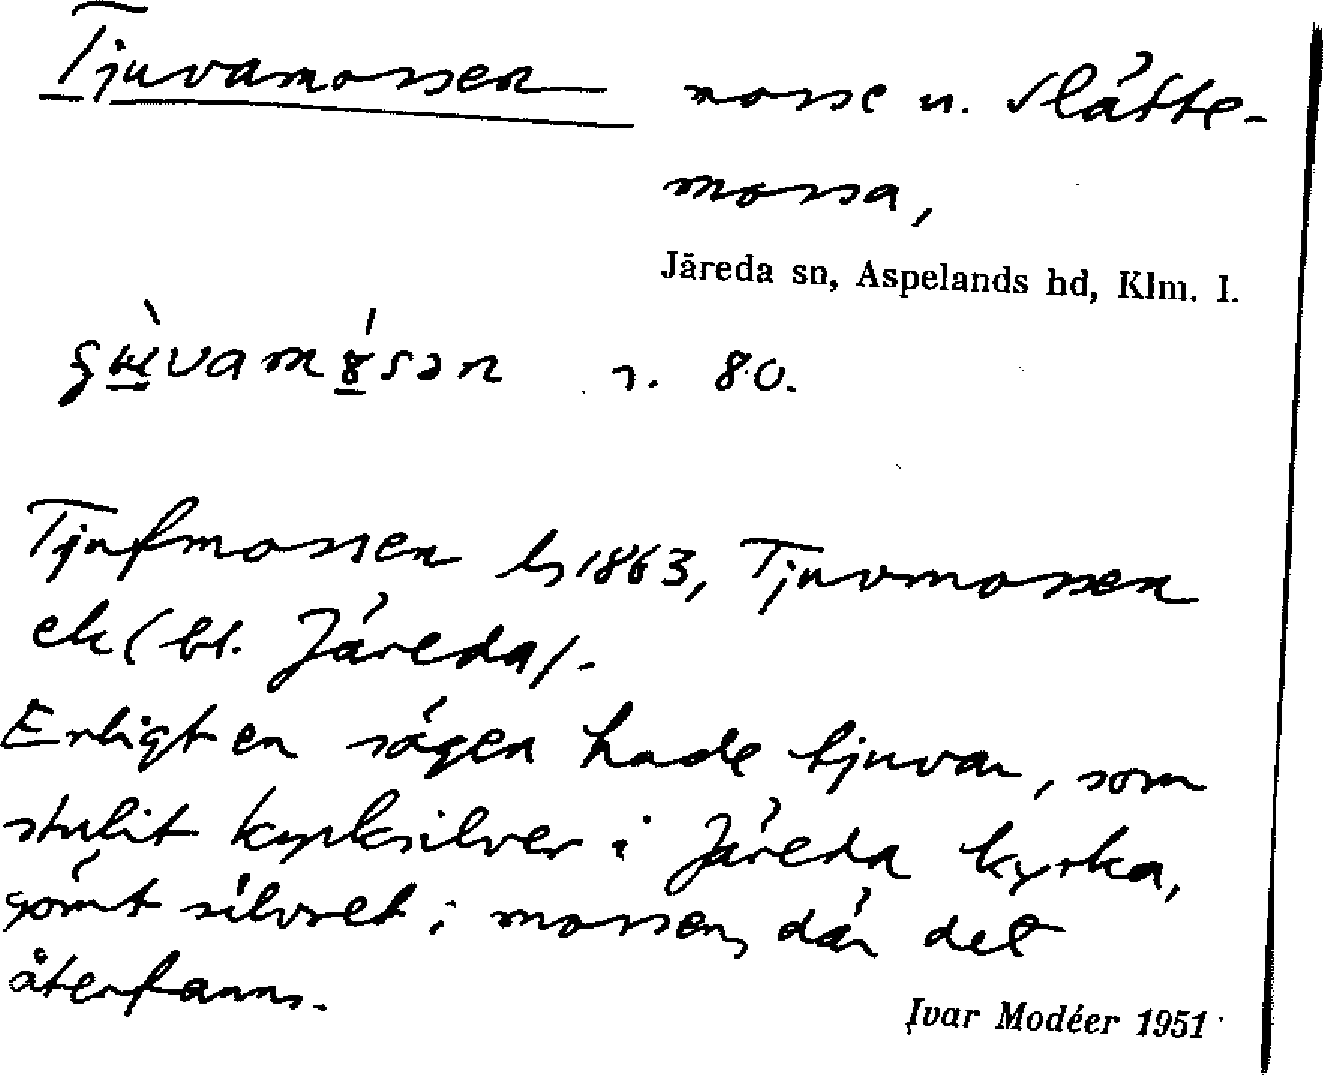 Tjuvamossen mosse u. slätte-
mossa,
Järeda sn, Aspelands hd, Klm. l.
r. 80.
Tjufmossen ls 1863, Tjuvmossen
ek (bl. Järeda).
Enligt en sägen hade tjuvar, som
stulit kyrksilver i Järeda kyrka,
gömt silvret i mossen, där det
återfanns.
Ivar Modéer 1951